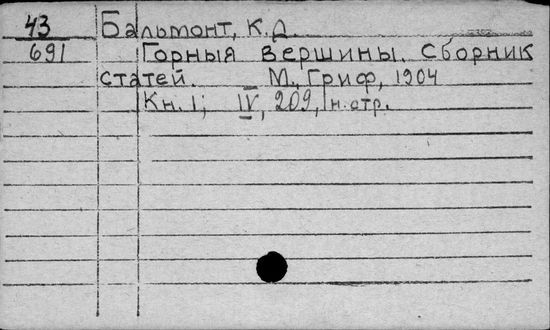 43 Бальмонт, К.Д.
691 Горныя вершины. Сборник
статей. М., Гриф, 1904
Кн. 1; IV, 209, н. стр.